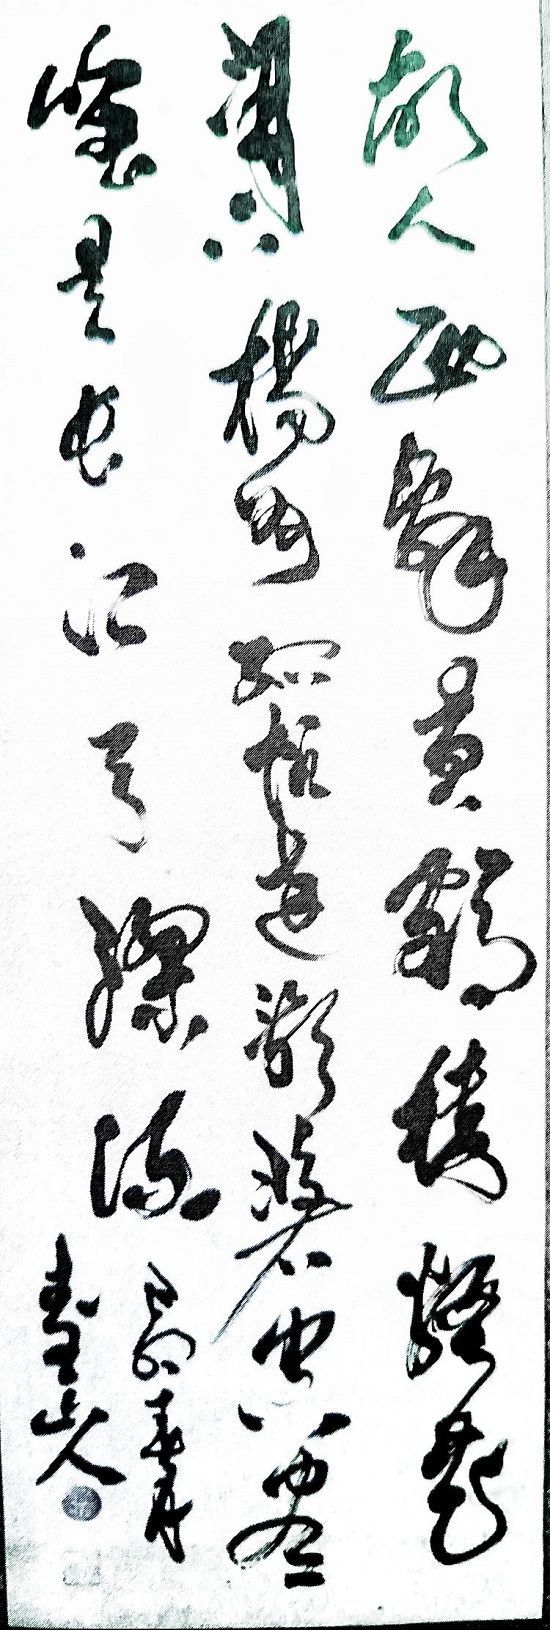 故人西辭黄鶴樓煙花
三月下楊州孤帆遠影碧空盡
見長江天際流
己卯春月
山人